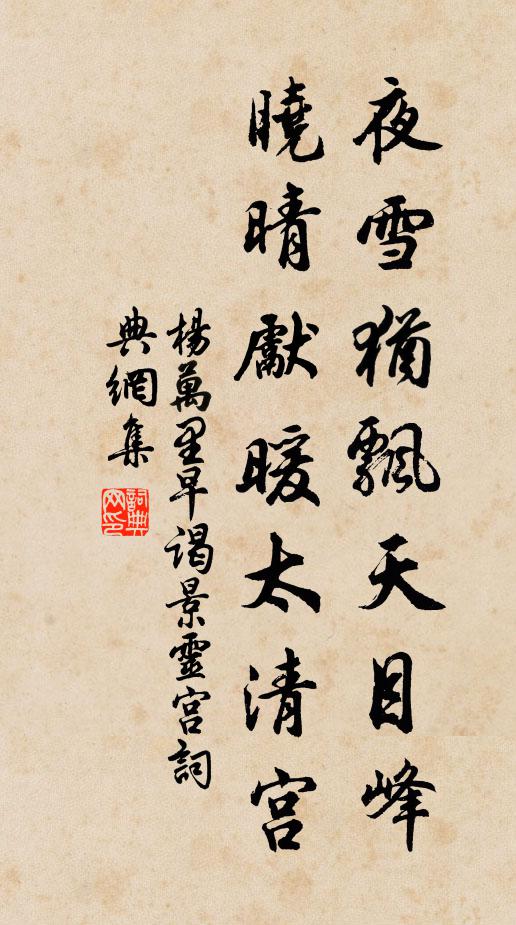 夜雪猶飄天目峰
曉晴獻暖太清宮
楊萬里早謁景靈宮詞
典網集
詞典網印